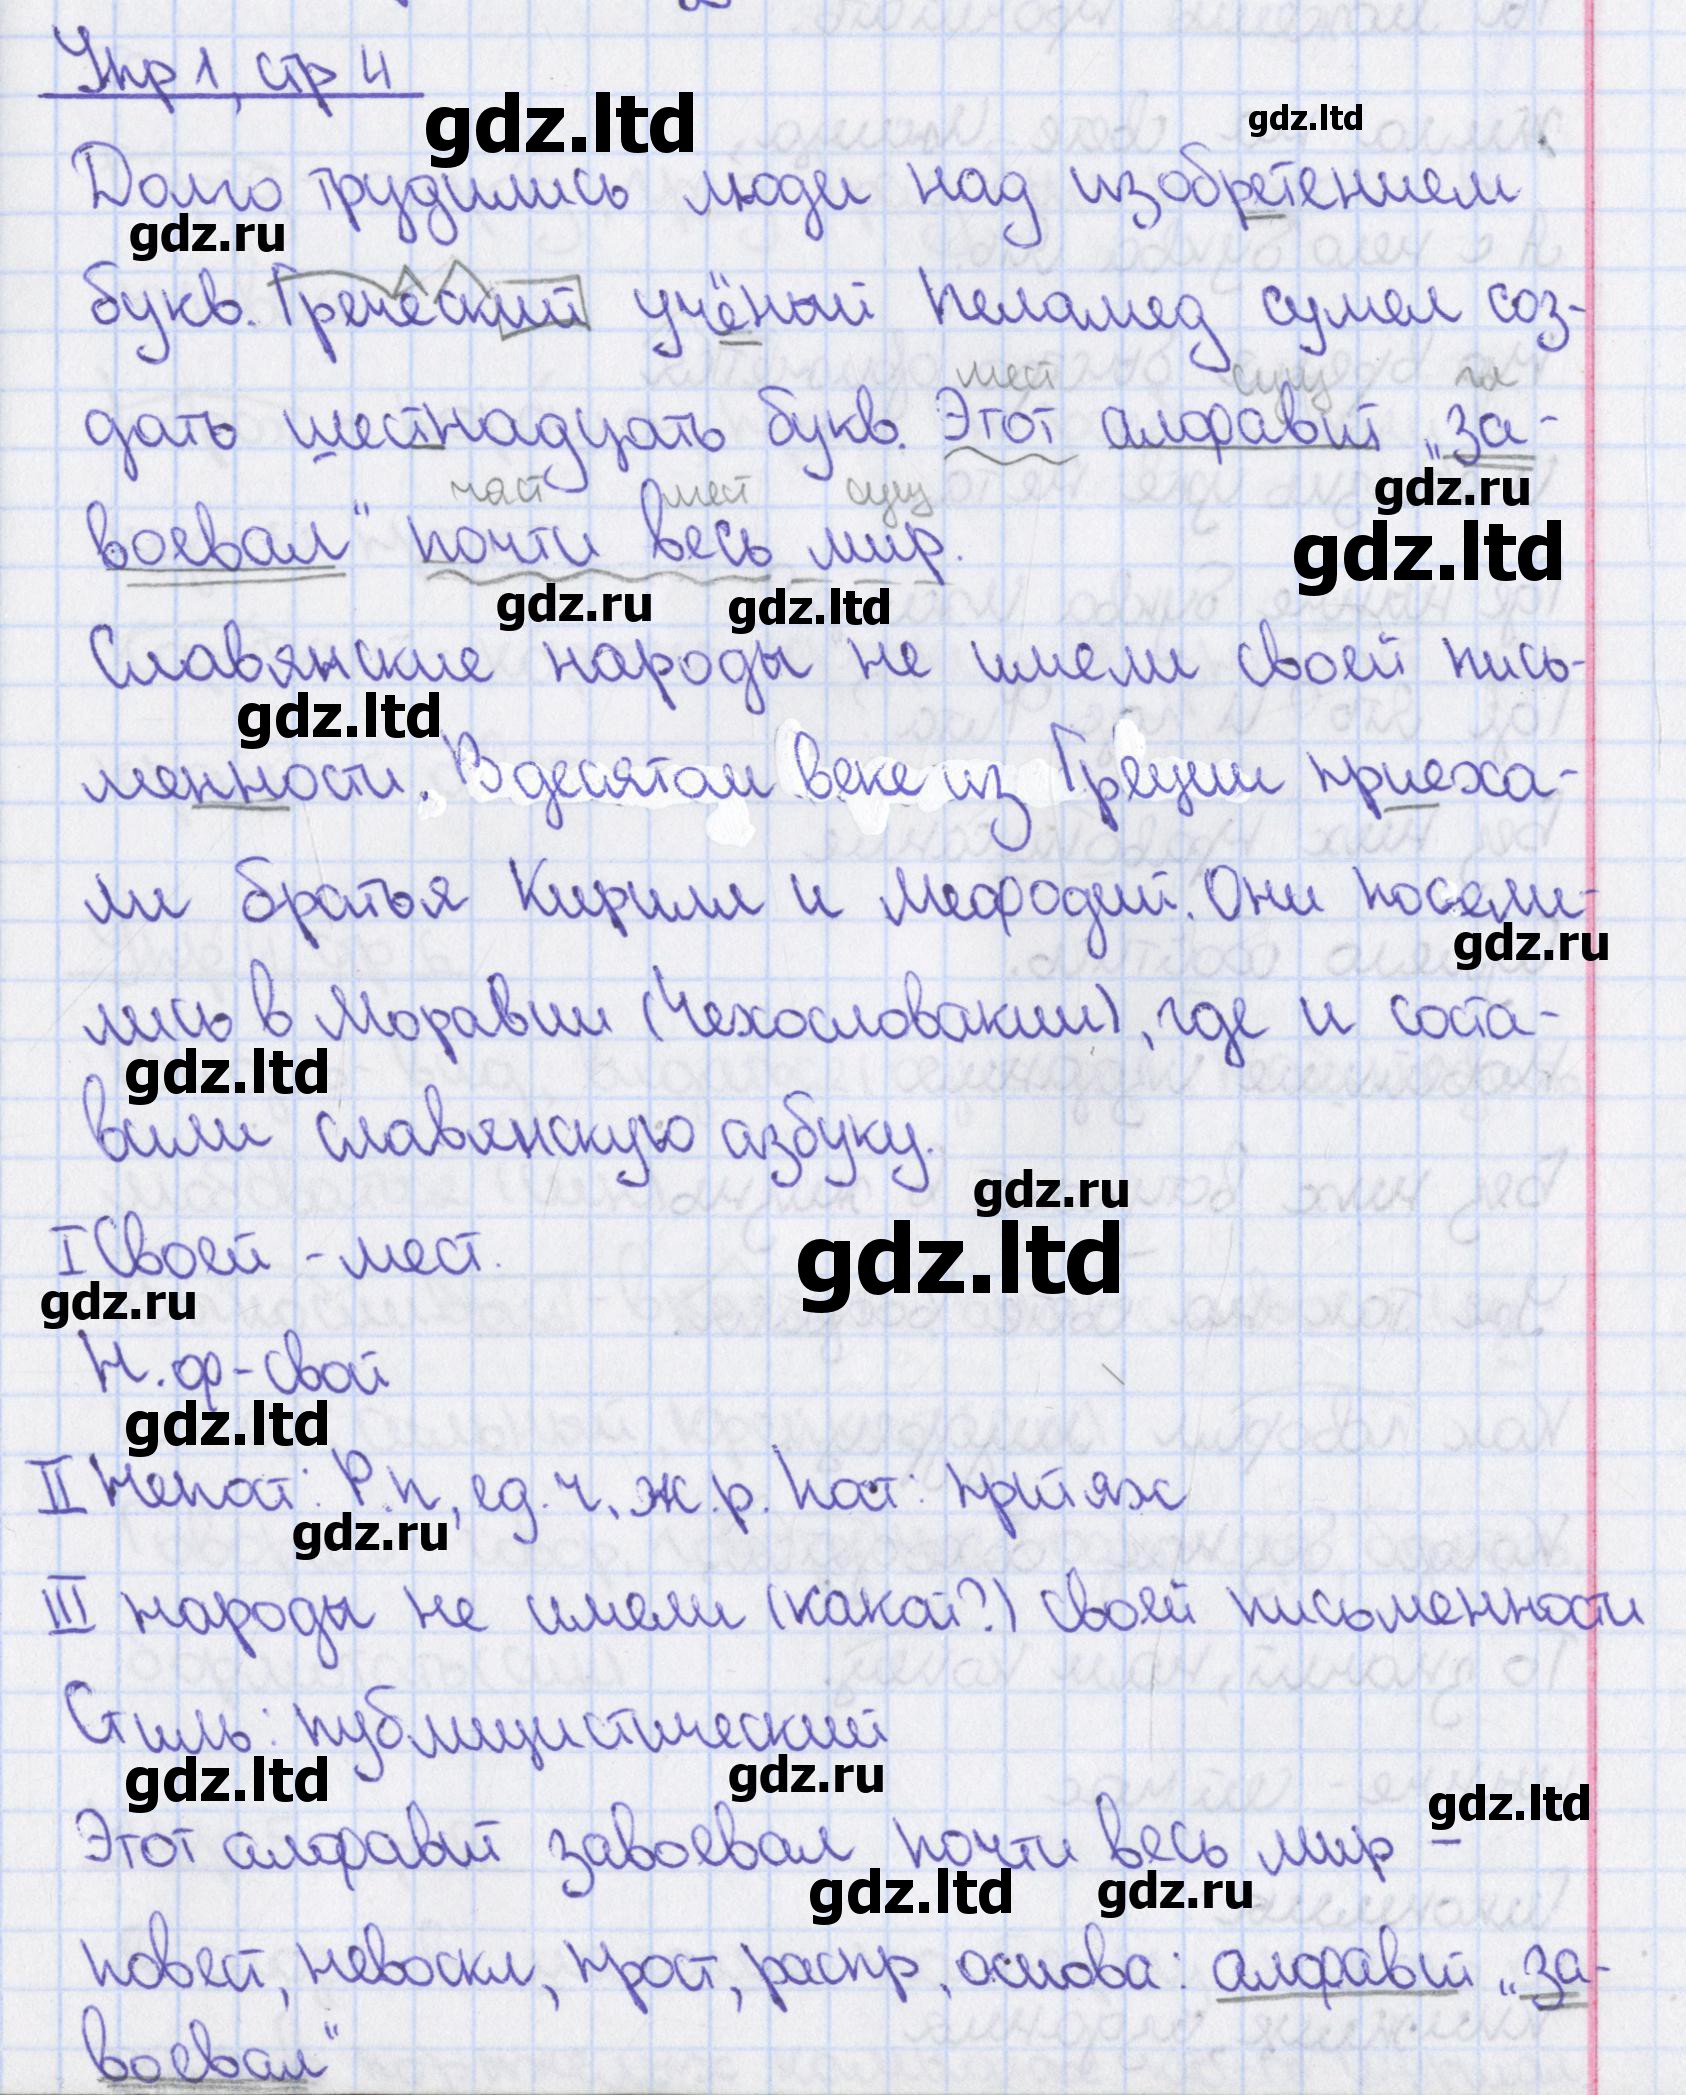 Упр 1, стр 4
gdz.ltd
gdz.ltd
Долго трудились люди над изобретением
gdz.ru
букв. Греческий учёный Паламед сумел соз-
мест сущ гл
дать шестнадцать букв. Этот алфавит „за-
gdz.ru
част мест сущ
воевал“ почти весь мир.
gdz.ltd
gdz.ru gdz.ltd
Славянские народы не имели своей пись-
gdz.ltd
менности. В десятом веке из Греции приеха-
ли братья Кирилл и Мефодий. Они посели-
gdz.ru
лись в Моравии (Чехословакии), где и соста-
gdz.ltd
вили славянскую азбуку.
gdz.ru
I Своей - мест.
gdz.ltd
gdz.ru
Н. ф - свой
gdz.ltd
II Непост: Р.п, ед. ч, ж.р. Пост: притяж
gdz.ru
III народы не имели (какой?) своей письменности
Стиль: публицистический
gdz.ltd gdz.ru
gdz.ltd
Этот алфавит завоевал почти весь мир -
gdz.ltd gdz.ru
повест, невоскл, прост, распр, основа: алфавит „за-
воевал“